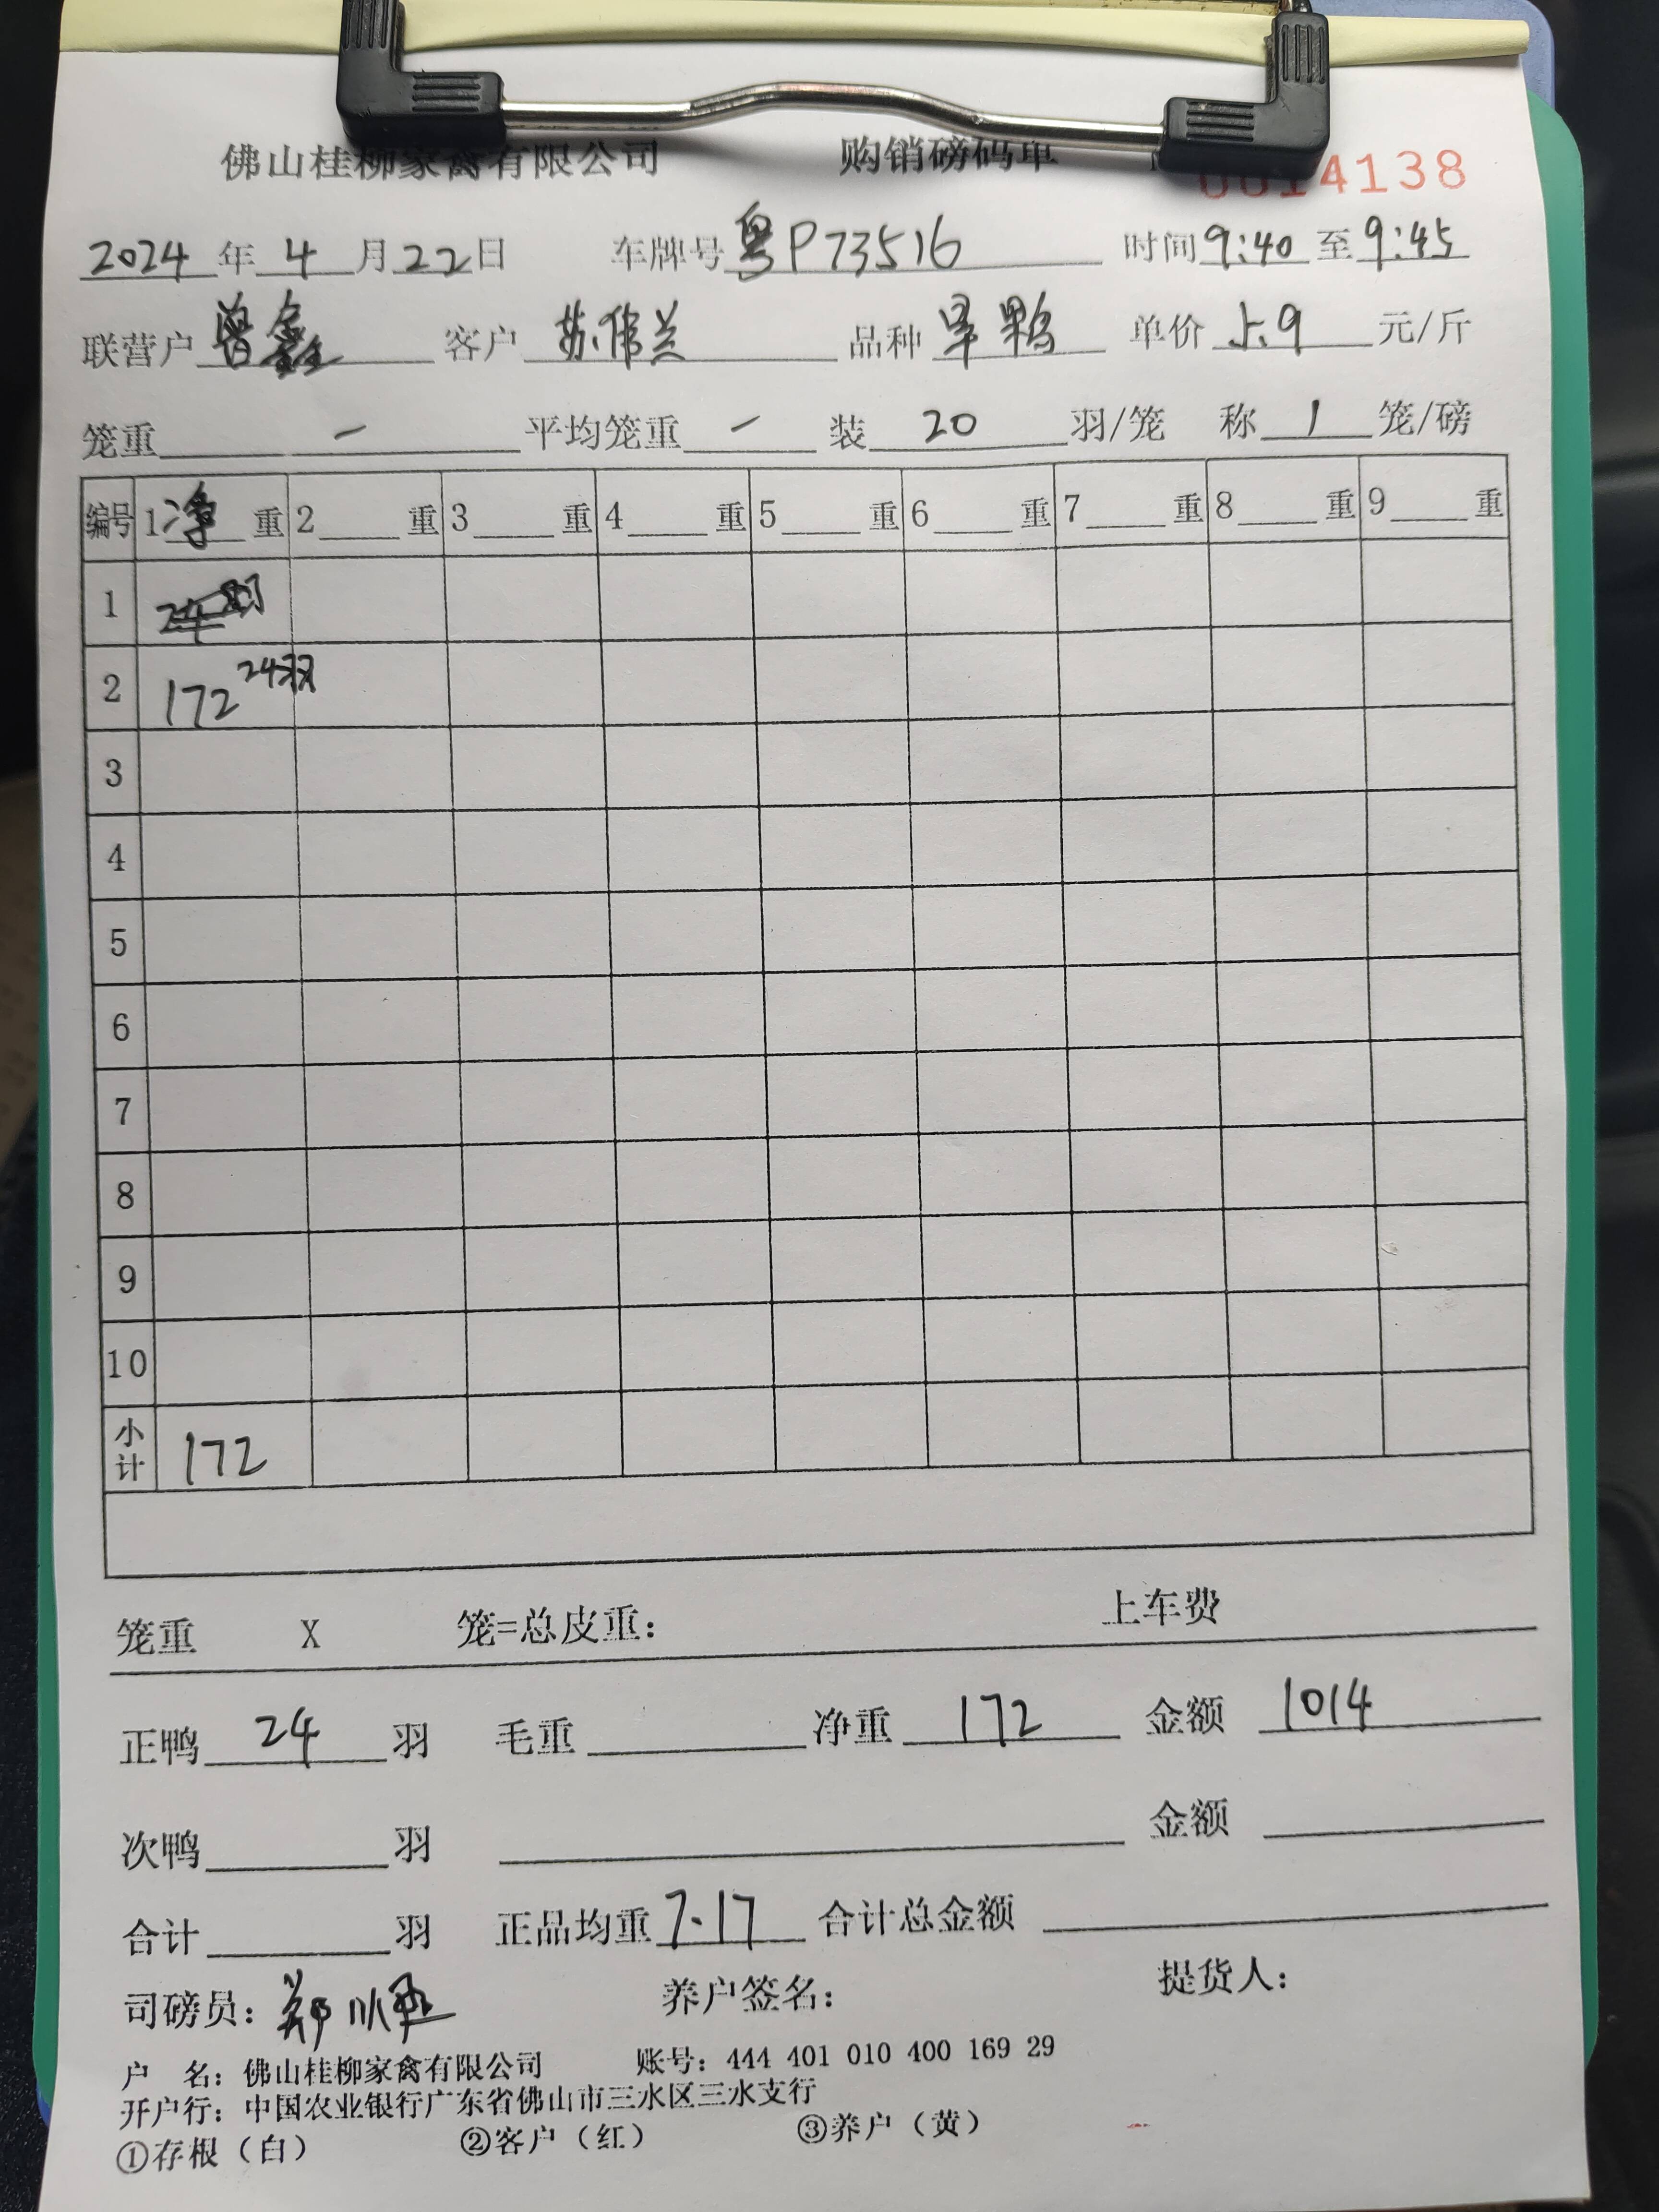 佛山桂柳家禽有限公司 购销磅码单 0014138
2024年4月22日 车牌号粤P73516 时间9:40至9:45
联营户曾鑫 客户苏伟兰 品种 单价5.9元/斤
笼重 — 平均笼重 — 装20羽/笼 称1笼/磅
编号 1净重 2重 3重 4重 5重 6重 7重 8重 9重
1
2 172 24羽
3
4
5
6
7
8
9
10
小计 172
笼重 X 笼=总皮重: 上车费
正鸭24羽 毛重 净重172 金额1014
次鸭 羽 金额
合计 羽 正品均重7.17 合计总金额
司磅员:郑 养户签名: 提货人:
户 名:佛山桂柳家禽有限公司 账号:444 401 010 400 169 29
开户行:中国农业银行广东省佛山市三水区三水支行
①存根(白) ②客户(红) ③养户(黄)